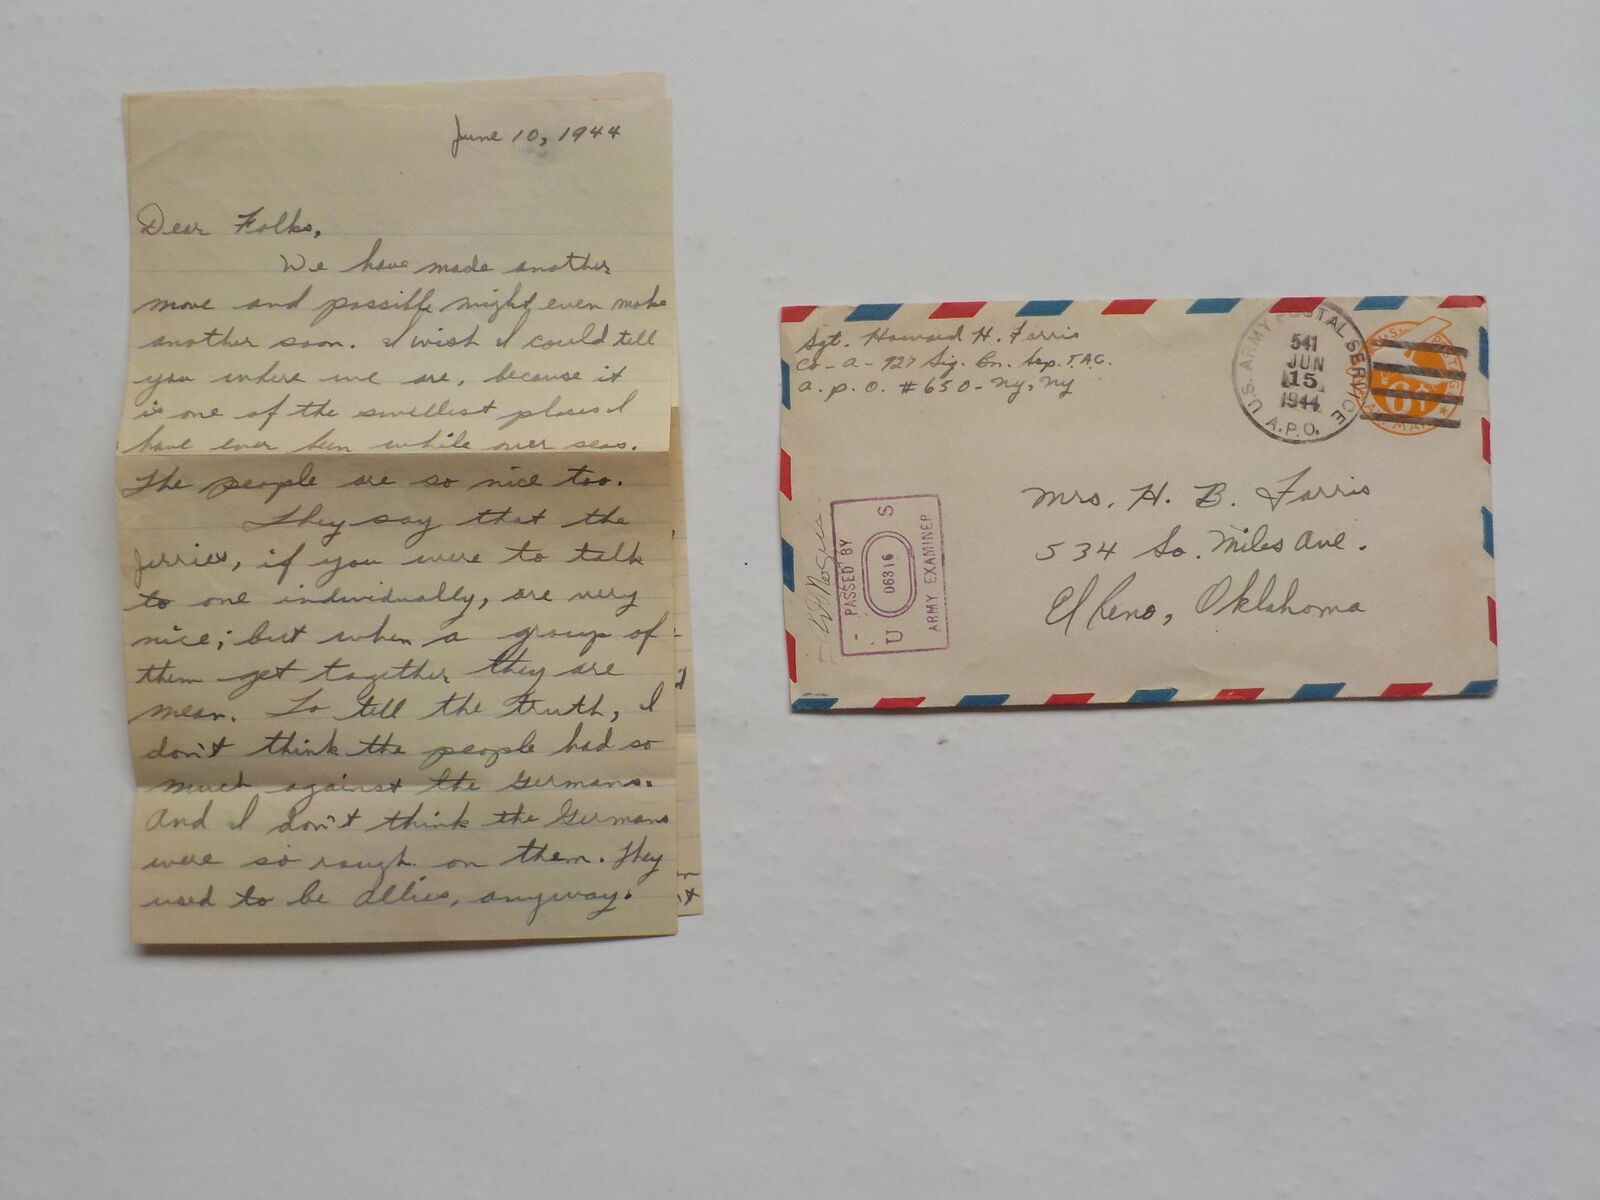 June 10, 1944
Dear Folks,
We have made another
move and possible might even make
another soon. I wish I could tell
you where we are, because it
is one of the swellest places I
have ever been while over seas.
The people are so nice too.
They say that the
Jerries, if you were to talk
to one individually, are very
nice; but when a group of
them get together they are
mean. To tell the truth, I
don't think the people had so
much against the Germans.
And I don't think the Germans
were so rough on them. They
used to be Allies, anyway.
Sgt. Howard H. Farris
Co-A-927 Sig. Bn. Sep. T.A.C.
A.P.O. #650-Ny, Ny
U.S. ARMY POSTAL SERVICE
541
JUN
15
1944
A.P.O.
Mrs. H. B. Farris
534 So. Miles Ave.
El Reno, Oklahoma
PASSED BY
U 06316 S
ARMY EXAMINER